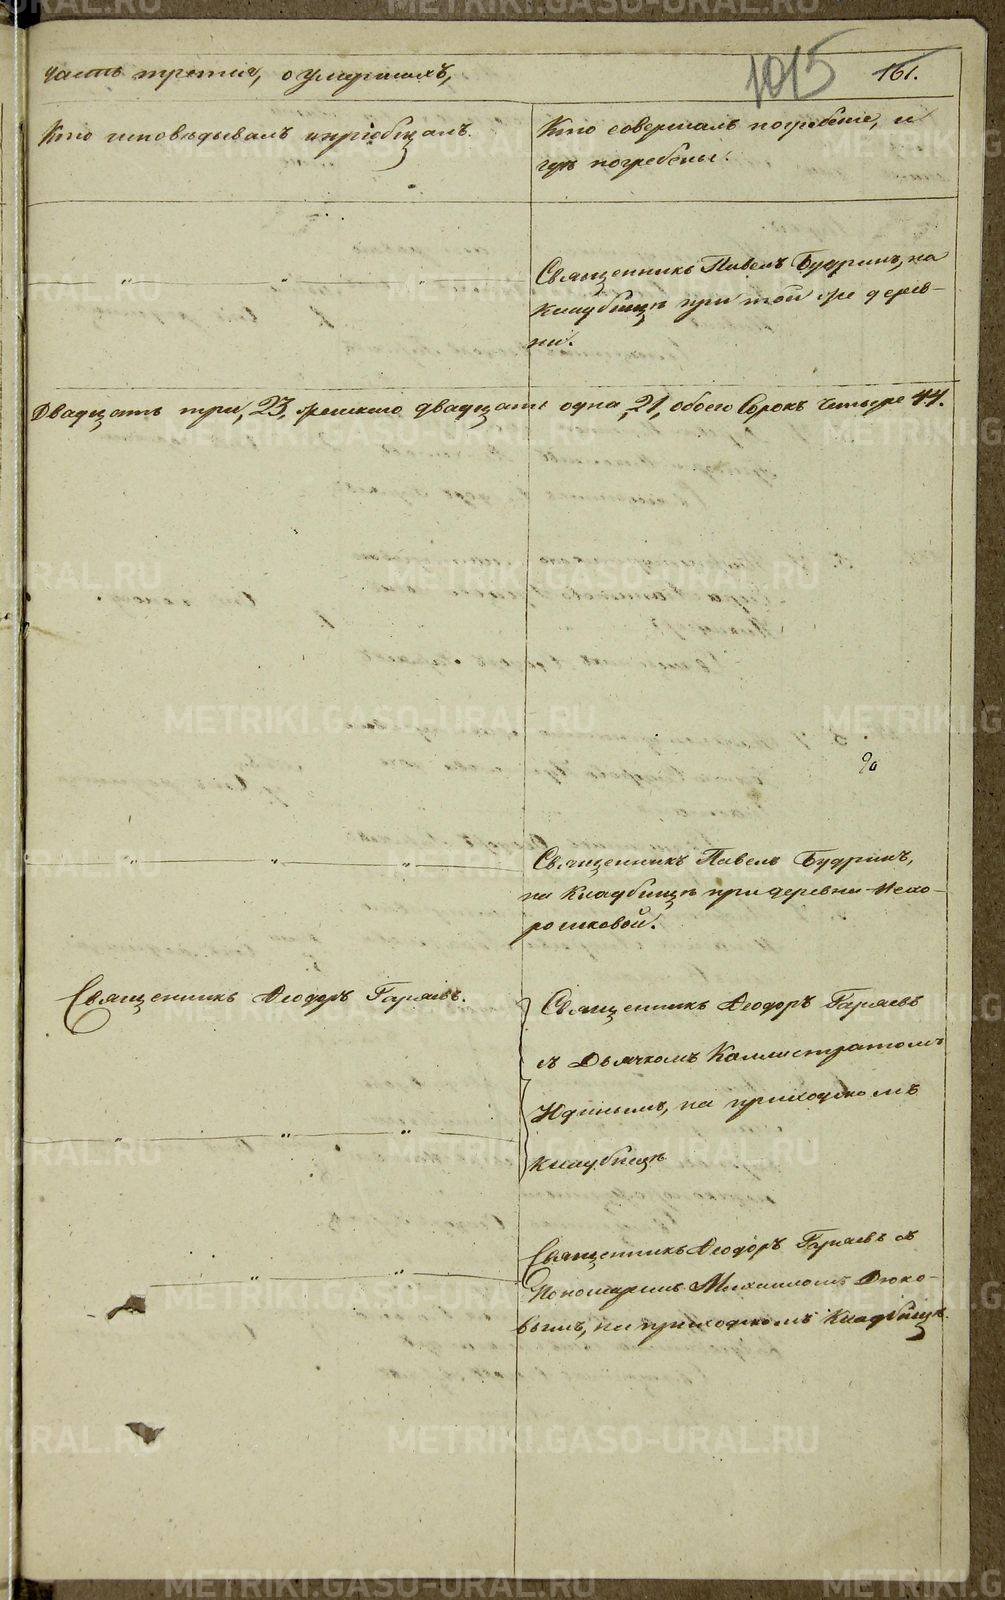 часть третія, о умершихъ,
1015
161.
Кто исповѣдывалъ и пріобщалъ.
Кто совершалъ погребеніе, и
гдѣ погребены.
Священникъ Павелъ Будринъ, на
кладбищѣ при той же дерев-
ни.
Двадцать три, 23, женскаго двадцать одна, 21, обоего Сорокъ Четыре 44.
Священникъ Павелъ Будринъ,
на Кладбищѣ при деревни
рошковой.
Священникъ Ѳеодоръ Гаряевъ.
Священникъ Ѳеодоръ Гаряевъ
съ Дьячкомъ Каллистратомъ
Юдинымъ, на приходскомъ
кладбищѣ
Священникъ Ѳеодоръ Гаряевъ съ
Пономаремъ Михаиломъ Дюко-
вымъ, на приходскомъ Кладбищѣ.
METRIKI.GASO-URAL.RU